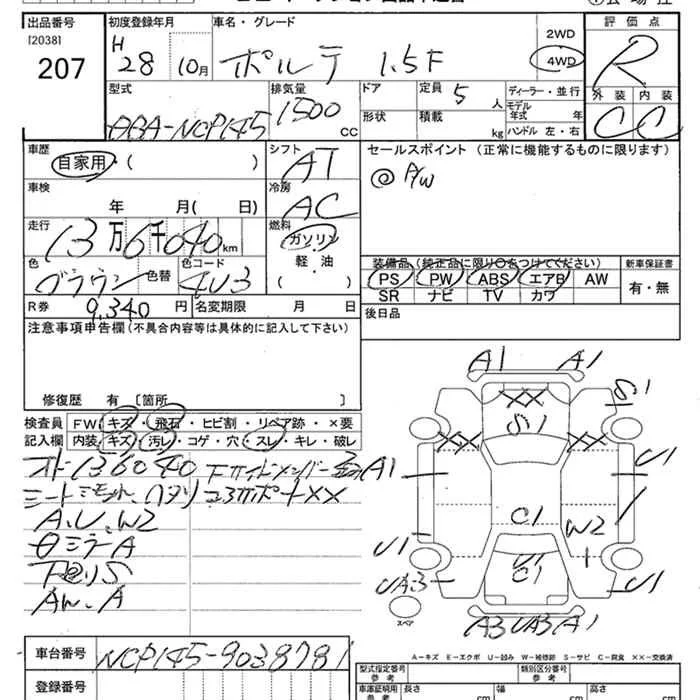 出品番号
[2038]
207
初度登録年月
H
28 10月
車名・グレード
ポルテ 1.5F
2WD
4WD
評価点
R
外装 内装
C C
型式
DBA-NCP145
排気量
1500 CC
ドア
形状
定員 5 人
積載 kg
ディーラー・並行
モデル年式 年
ハンドル 左・右
車歴
自家用 ( )
シフト
AT
車検
年 月( 日)
冷房
AC
走行
13万6千040km
燃料
ガソリン
軽・油
( )
色
ブラウン
色替
色コード
4U3
R券 9,340 円
名変期限 月 日
セールスポイント (正常に機能するものに限ります)
◎ P/W
装備品(純正品に限り○をつけてください)
PS PW ABS エアB AW
SR ナビ TV カワ
新車保証書
有・無
後日品
注意事項申告欄(不具合内容等は具体的に記入して下さい)
修復歴 有 [箇所 ]
検査員
記入欄
FW キズ・飛石・ヒビ割・リペア跡・×要
内装 キズ・汚レ・コゲ・穴・スレ・キレ・破レ
136040
A.U.W2
ミラーA
AW.A
A1 A1
S1
XX
S1
XX XX
A1
U1
C1
W2
U1
U1
C1
UA3
U1
A3 UA3 A1
スペア
A-キズ E-エクボ U-凹み W-補修跡 S-サビ C-腐食 ××-交換済
車台番号
NCP145-9038781
登録番号
型式指定番号
参考
類別区分番号
参考
車庫証明用
参考
長さ cm
幅 cm
高さ cm